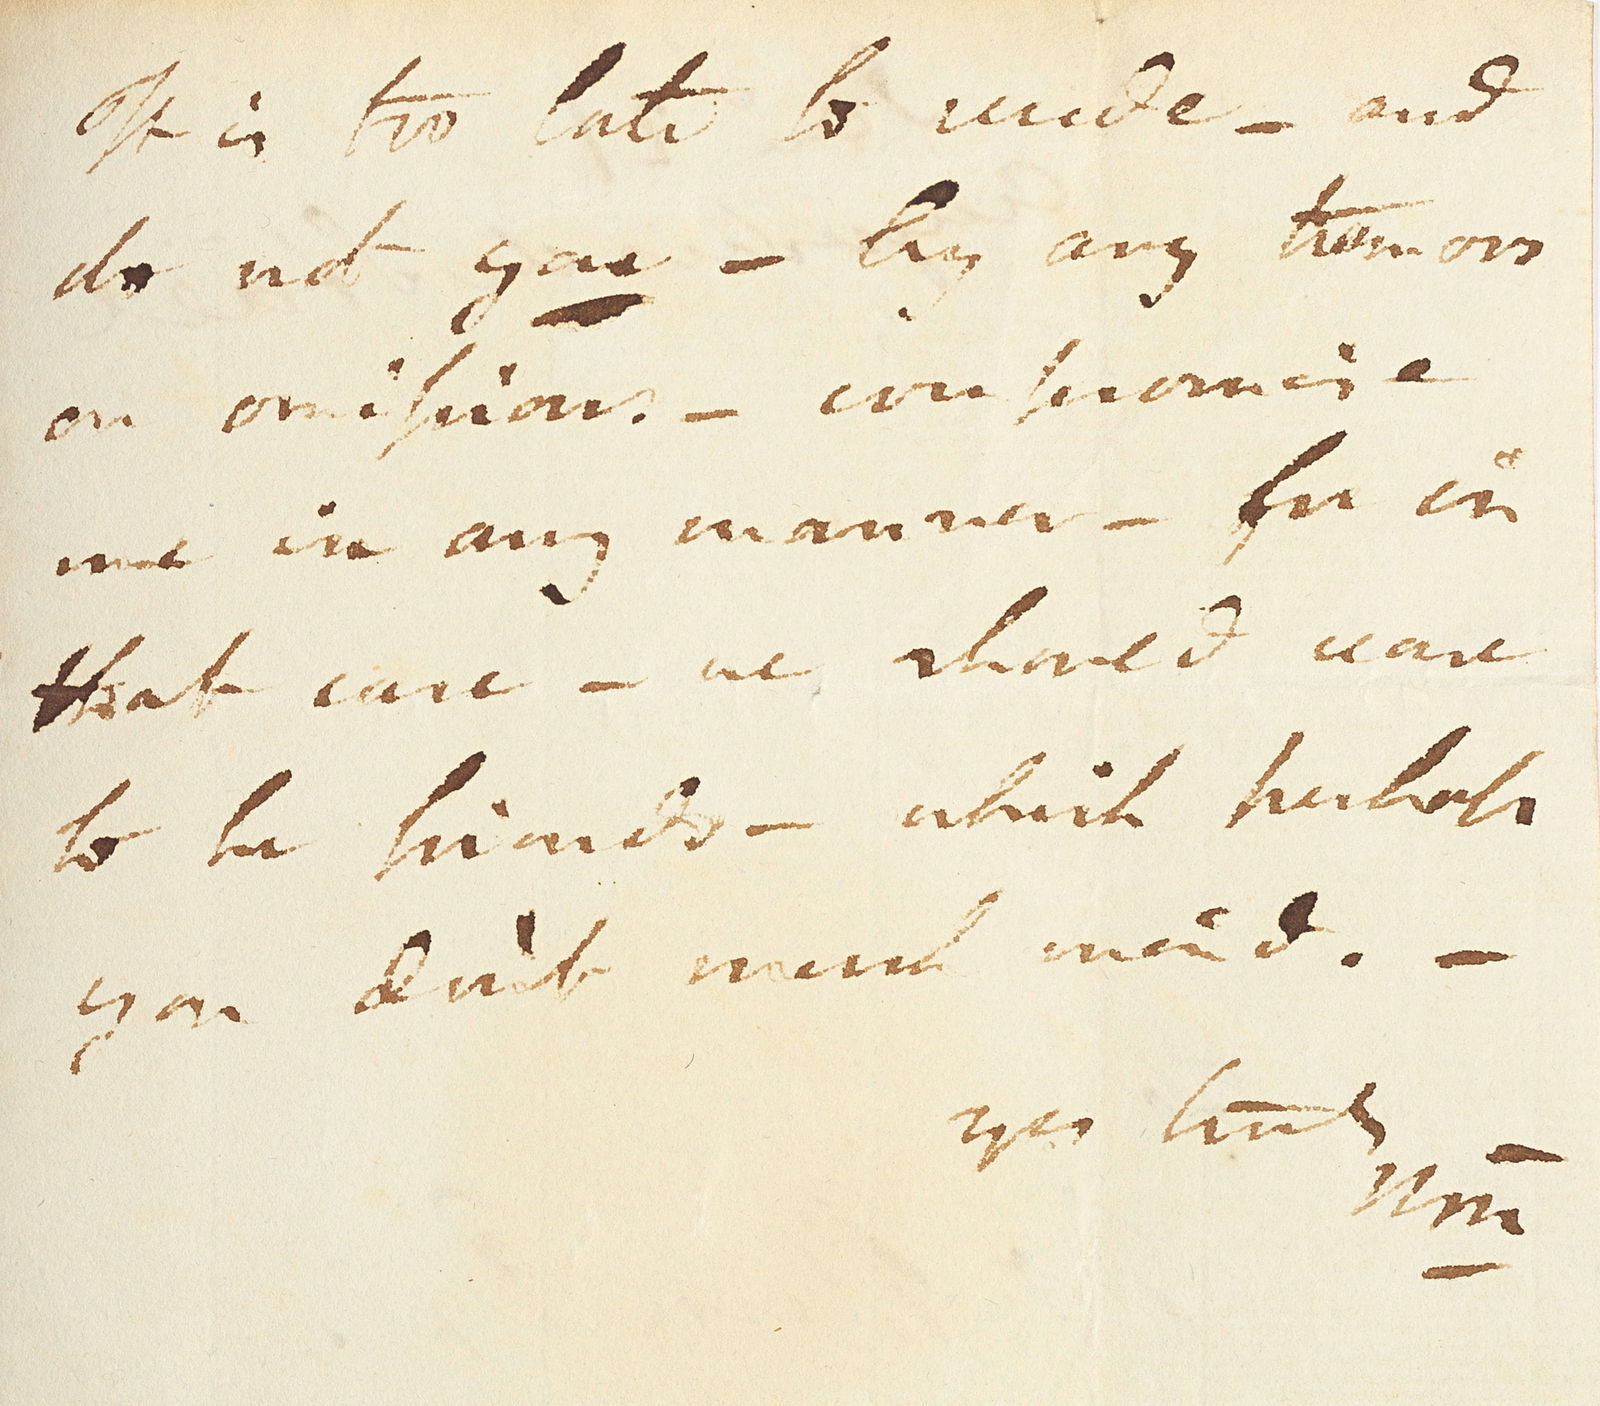 It is too late to recede — and
do not you — by any tremors
or omissions. — compromise
me in any manner — for in
that case — we should cease
to be friends — which perhaps
you don't much mind. —
yrs truly